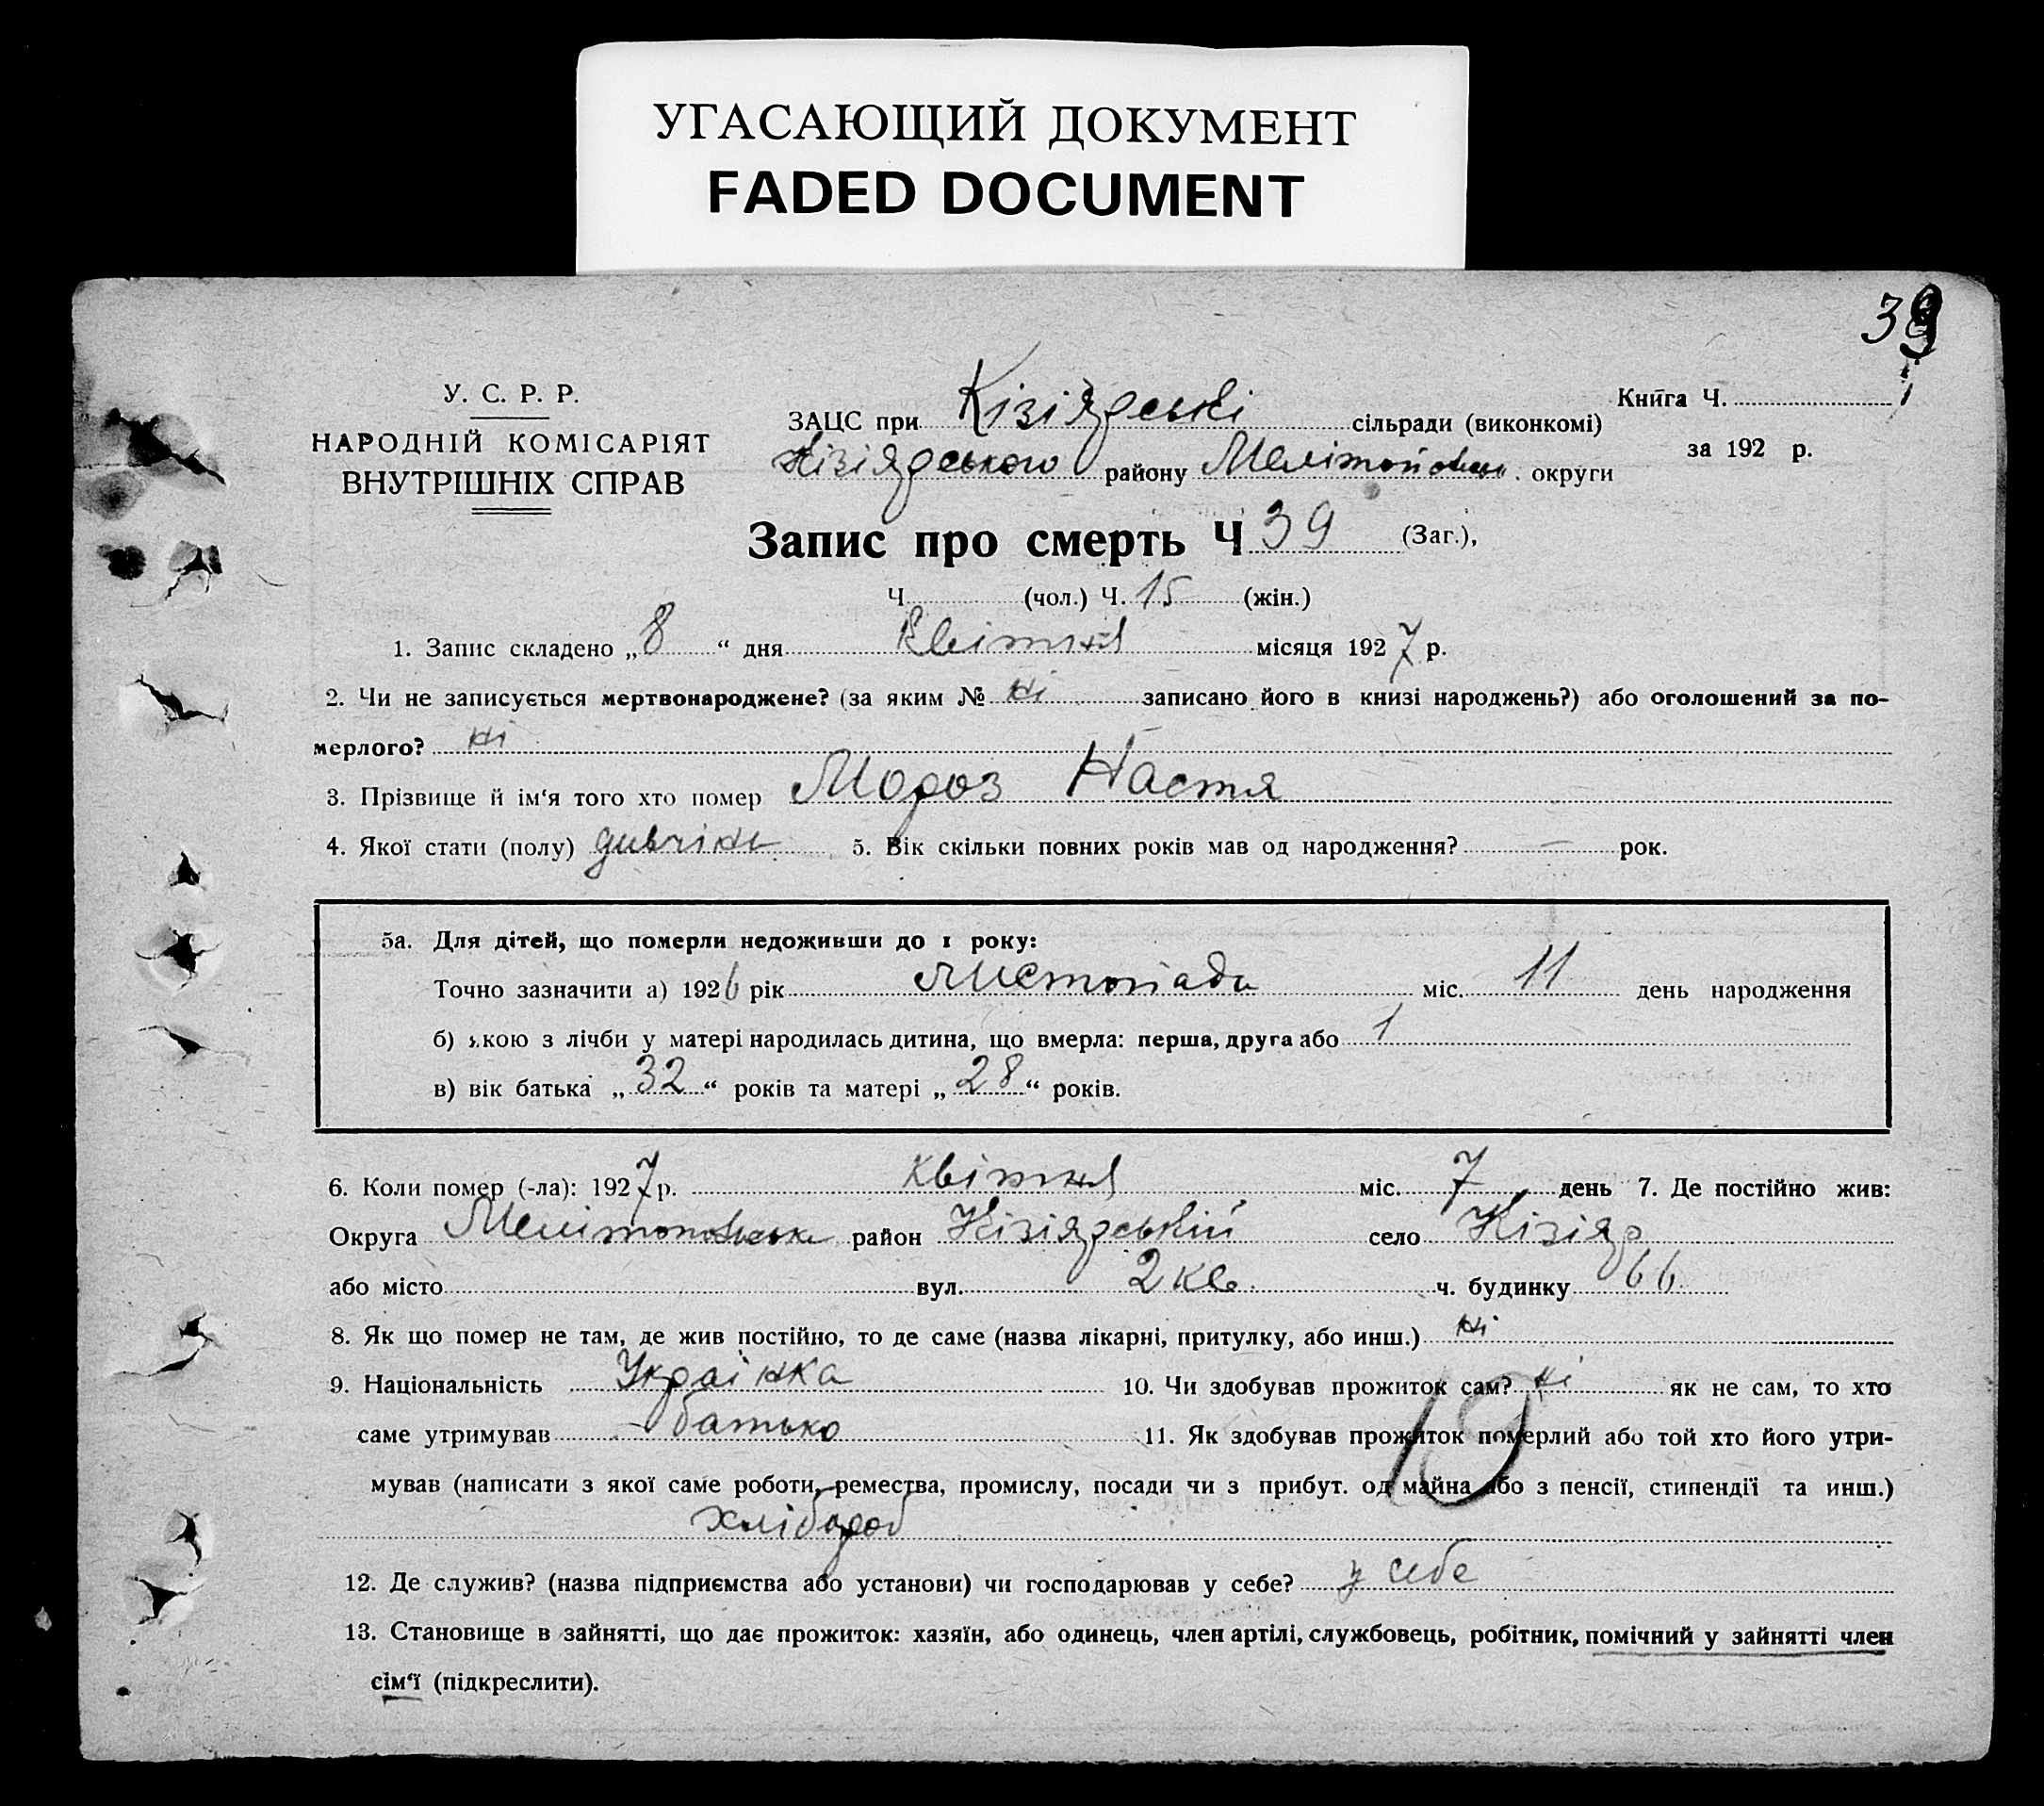 УГАСАЮЩИЙ ДОКУМЕНТ
FADED DOCUMENT
39
У. С. Р. Р.
НАРОДНІЙ КОМІСАРІЯТ
ВНУТРІШНІХ СПРАВ
ЗАЦС при Кізіярські сільради (виконкомі)
Кізіярського району Мелітопольськ. округи
Книга Ч.
за 192 р.
Запис про смерть Ч 39 (Заг.),
Ч (чол.) Ч. 15 (жін.)
1. Запис складено „8“ дня Квітня місяця 1927 р.
2. Чи не записується мертвонароджене? (за яким № ні записано його в книзі народжень?) або оголошений за по-
мерлого? ні
3. Прізвище й ім‘я того хто помер Мороз Настя
4. Якої стати (полу) дивчіни 5. Вік скільки повних років мав од народження? — рок.
5а. Для дітей, що померли недоживши до 1 року:
Точно зазначити а) 1926 рік Листопада міс. 11 день народження
б) якою з лічби у матері народилась дитина, що вмерла: перша, друга або 1
в) вік батька „32“ років та матері „28“ років.
6. Коли помер (-ла): 1927 р. Квітня міс. 7 день 7. Де постійно жив:
Округа Мелітопольська район Кізіярський село Кізіяр
або місто вул. 2 кв. ч. будинку 66.
8. Як що помер не там, де жив постійно, то де саме (назва лікарні, притулку, або инш.) ні
9. Національність Українка 10. Чи здобував прожиток сам? ні як не сам, то хто
саме утримував батько 11. Як здобував прожиток померлий або той хто його утри-
мував (написати з якої саме роботи, ремества, промислу, посади чи з прибут. од майна або з пенсії, стипендії та инш.)
19
хлібороб
12. Де служив? (назва підприємства або установи) чи господарював у себе? у себе
13. Становище в зайнятті, що дає прожиток: хазяїн, або одинець, член артілі, службовець, робітник, помічний у зайнятті член
сім‘ї (підкреслити).